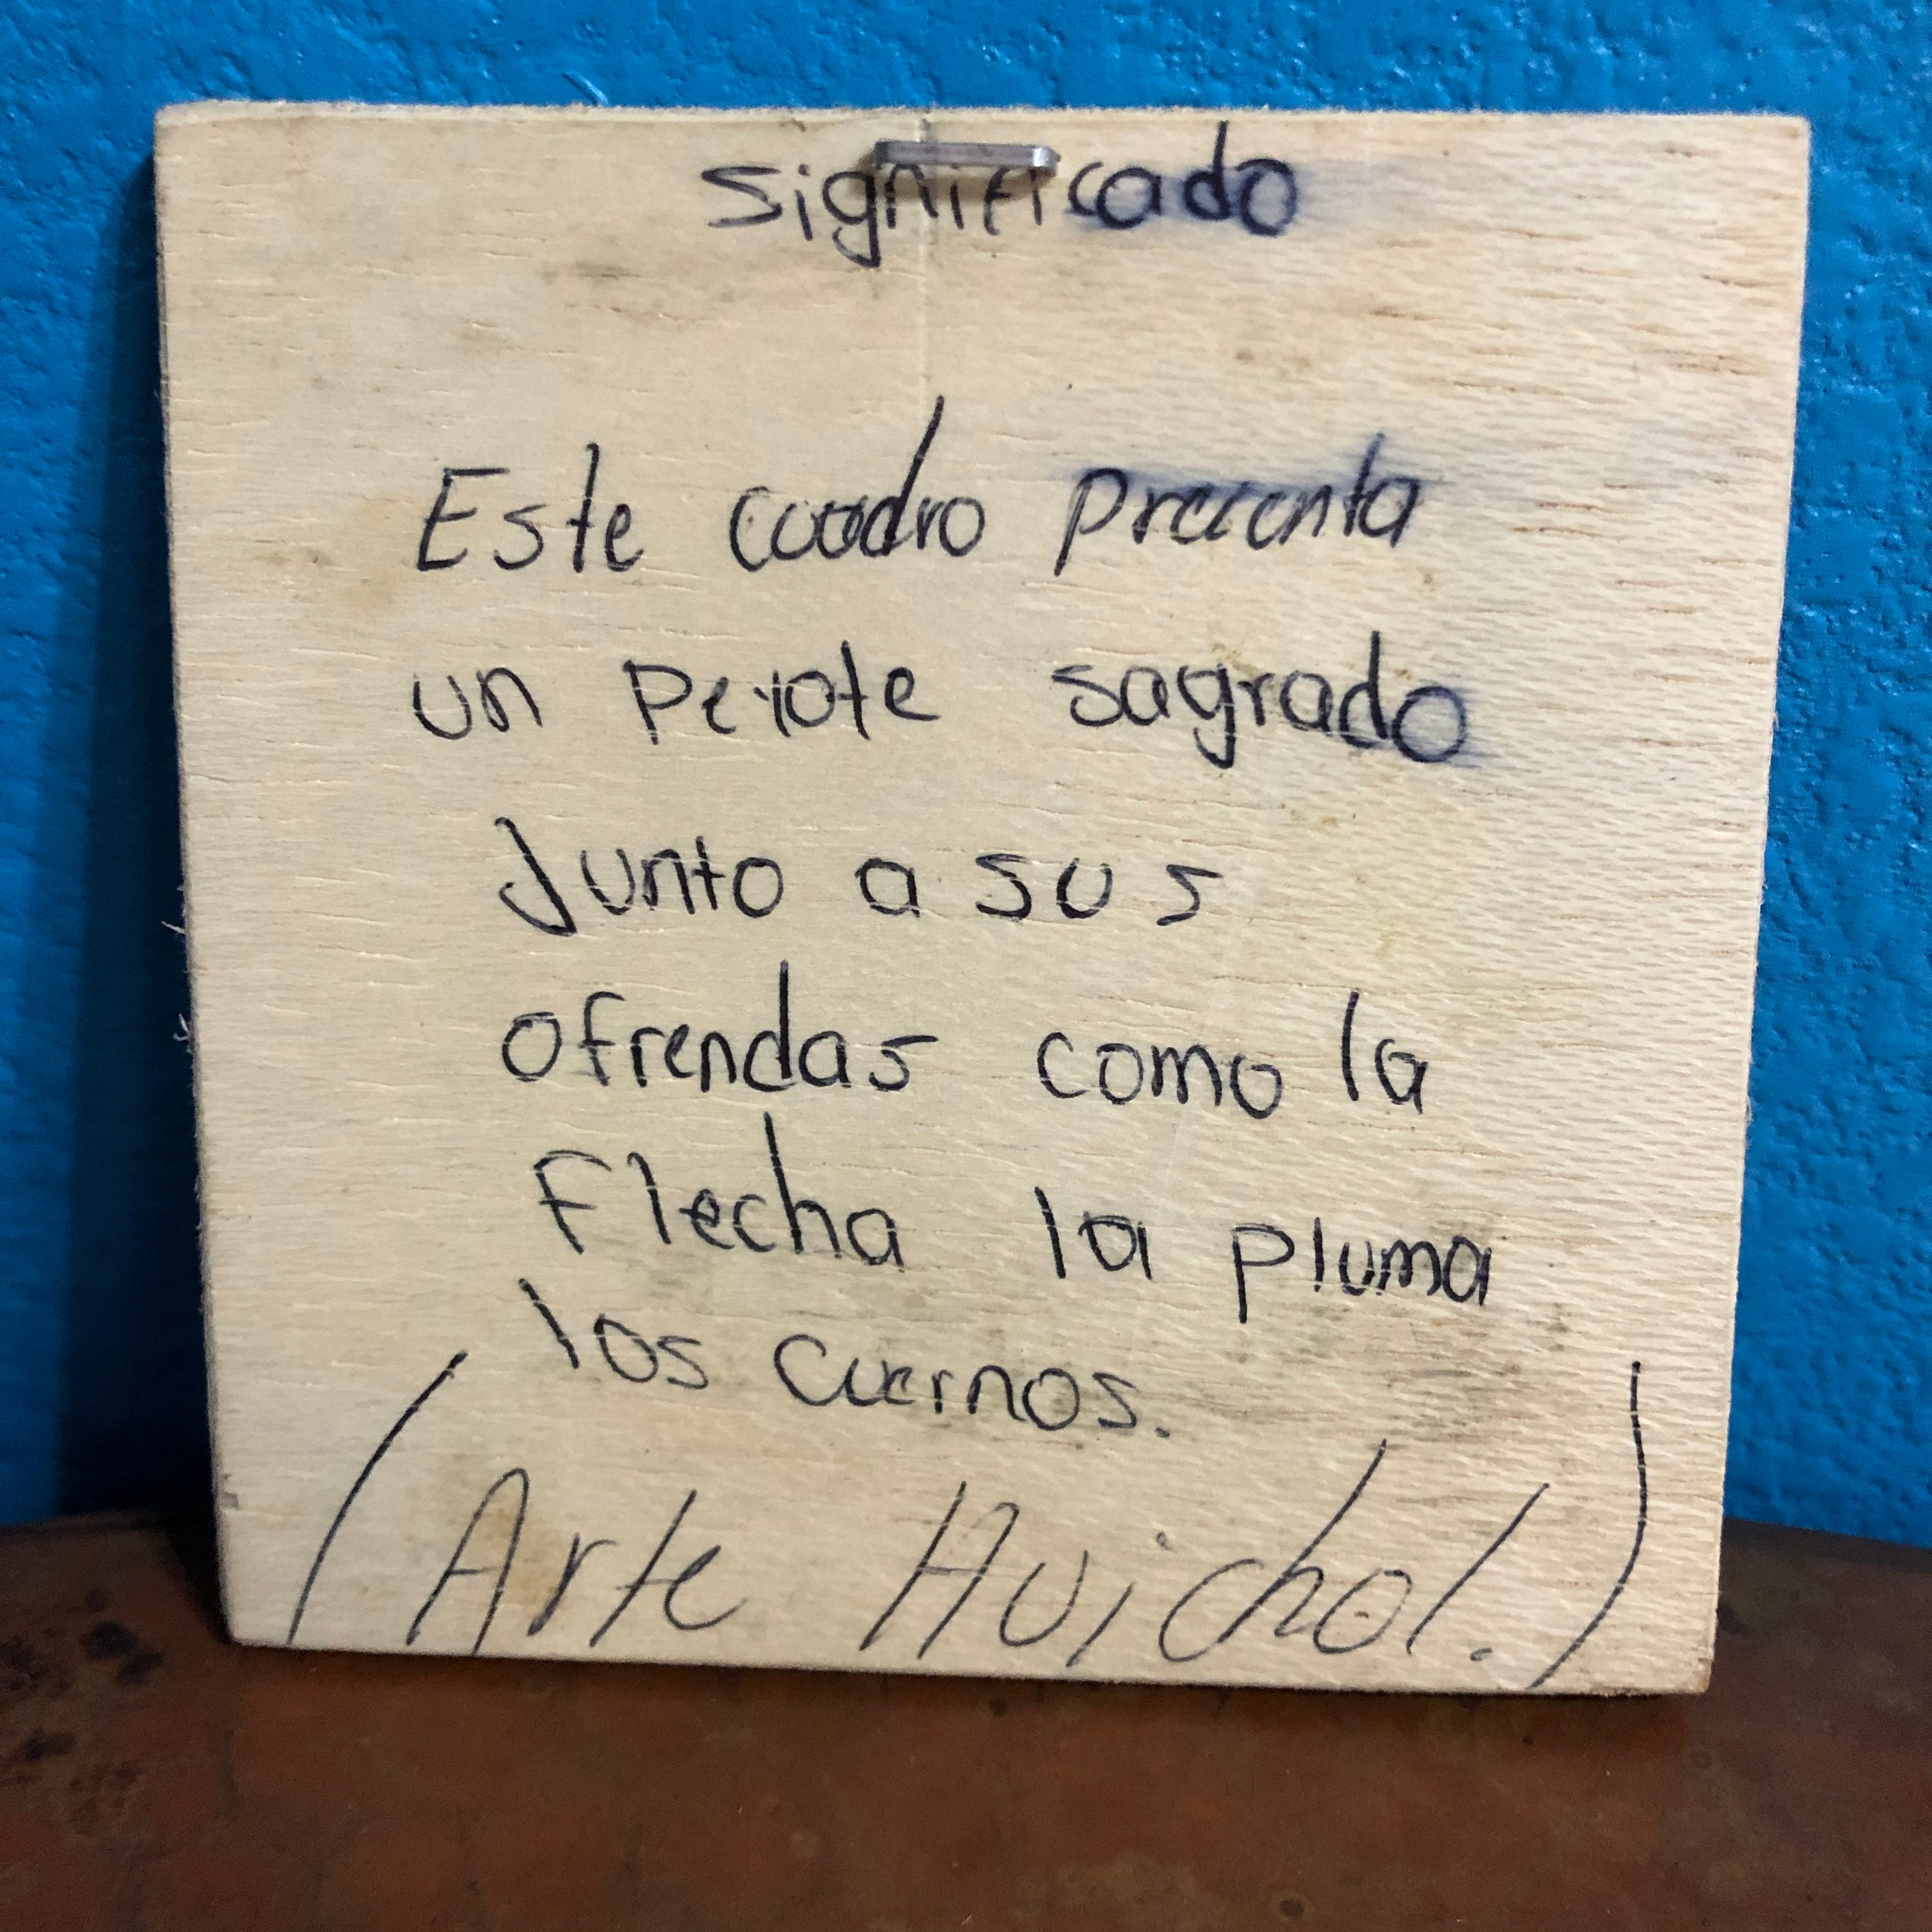 significado
Este cuadro precenta
un Peyote sagrado
Junto a sus
ofrendas como la
Flecha la pluma
los cuernos.
(Arte Huichol.)